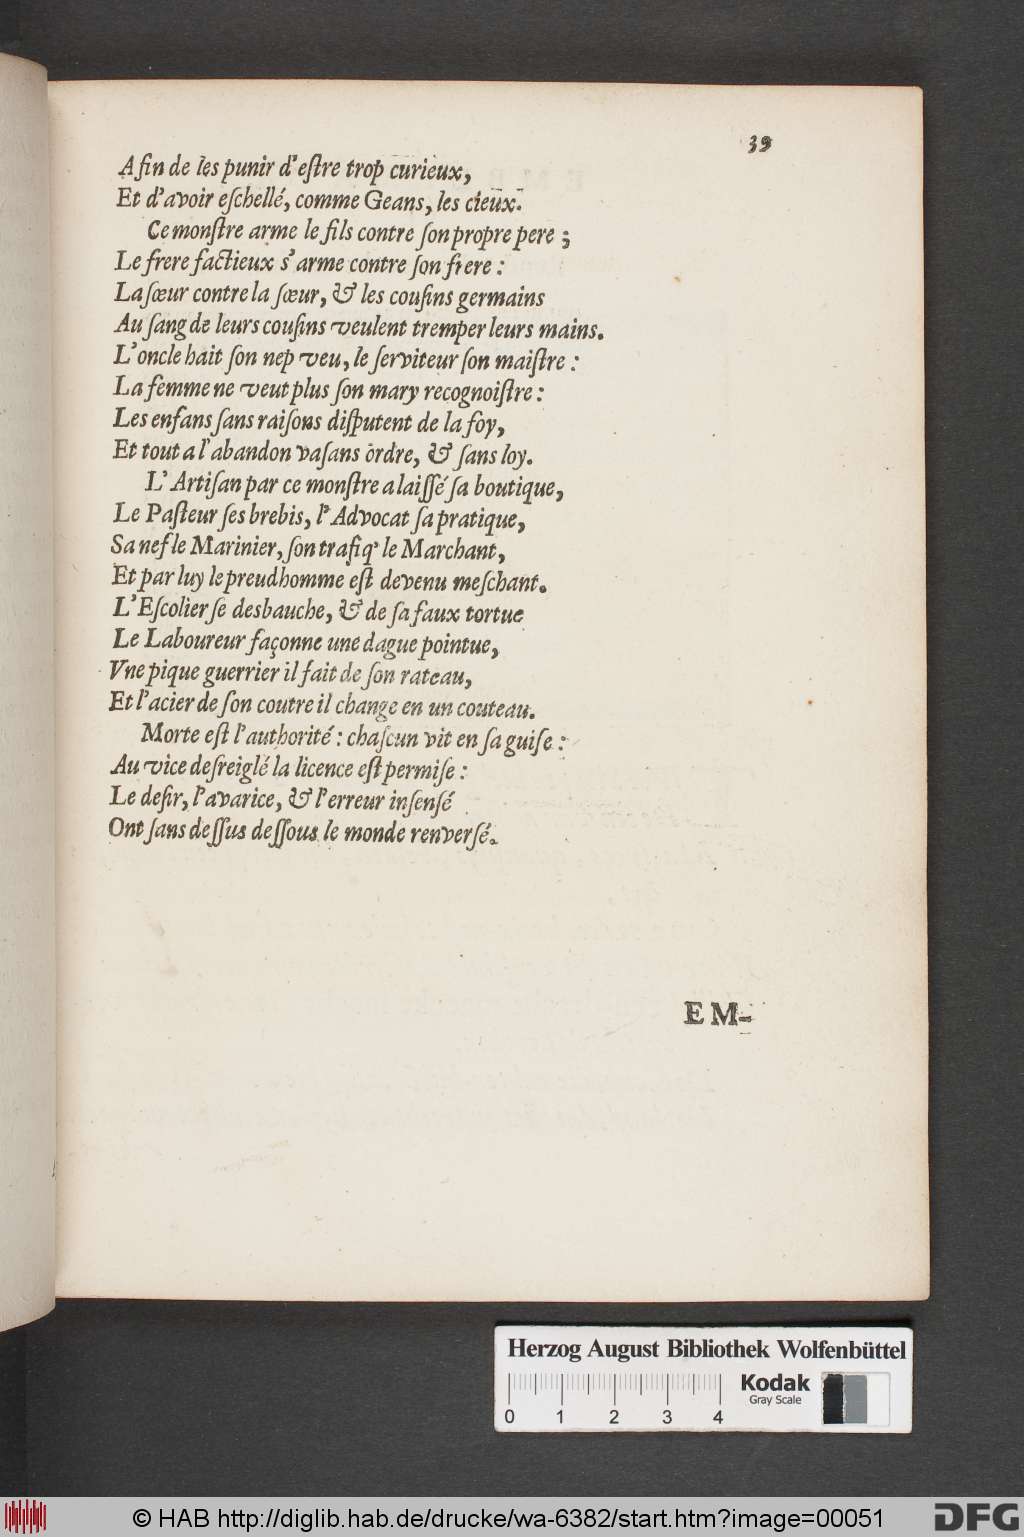 39
Afin de les punir d'eſtre trop curieux,
Et d'avoir eſchellé, comme Geans, les cieux.
Ce monſtre arme le fils contre ſon propre pere ;
Le frere factieux s'arme contre ſon frere :
La ſœur contre la ſœur, & les couſins germains
Au ſang de leurs couſins veulent tremper leurs mains.
L'oncle hait ſon nepveu, le ſerviteur ſon maiſtre :
La femme ne veut plus ſon mary recognoiſtre :
Les enfans ſans raiſons diſputent de la foy,
Et tout a l'abandon va ſans ordre, & ſans loy.
L'Artiſan par ce monſtre a laiſſé ſa boutique,
Le Paſteur ſes brebis, l'Advocat ſa pratique,
Sa nef le Marinier, ſon trafiq' le Marchant,
Et par luy le preudhomme eſt devenu meſchant.
L'Eſcolier ſe desbauche, & de ſa faux tortue
Le Laboureur façonne une dague pointue,
Vne pique guerrier il fait de ſon rateau,
Et l'acier de ſon coutre il change en un couteau.
Morte eſt l'authorité : chaſcun vit en ſa guiſe :
Au vice deſreiglé la licence eſt permiſe :
Le deſir, l'avarice, & l'erreur inſenſé
Ont ſans deſſus deſſous le monde renverſé.
EM-
Herzog August Bibliothek Wolfenbüttel
Kodak
Gray Scale
0 1 2 3 4
© HAB http://diglib.hab.de/drucke/wa-6382/start.htm?image=00051
DFG